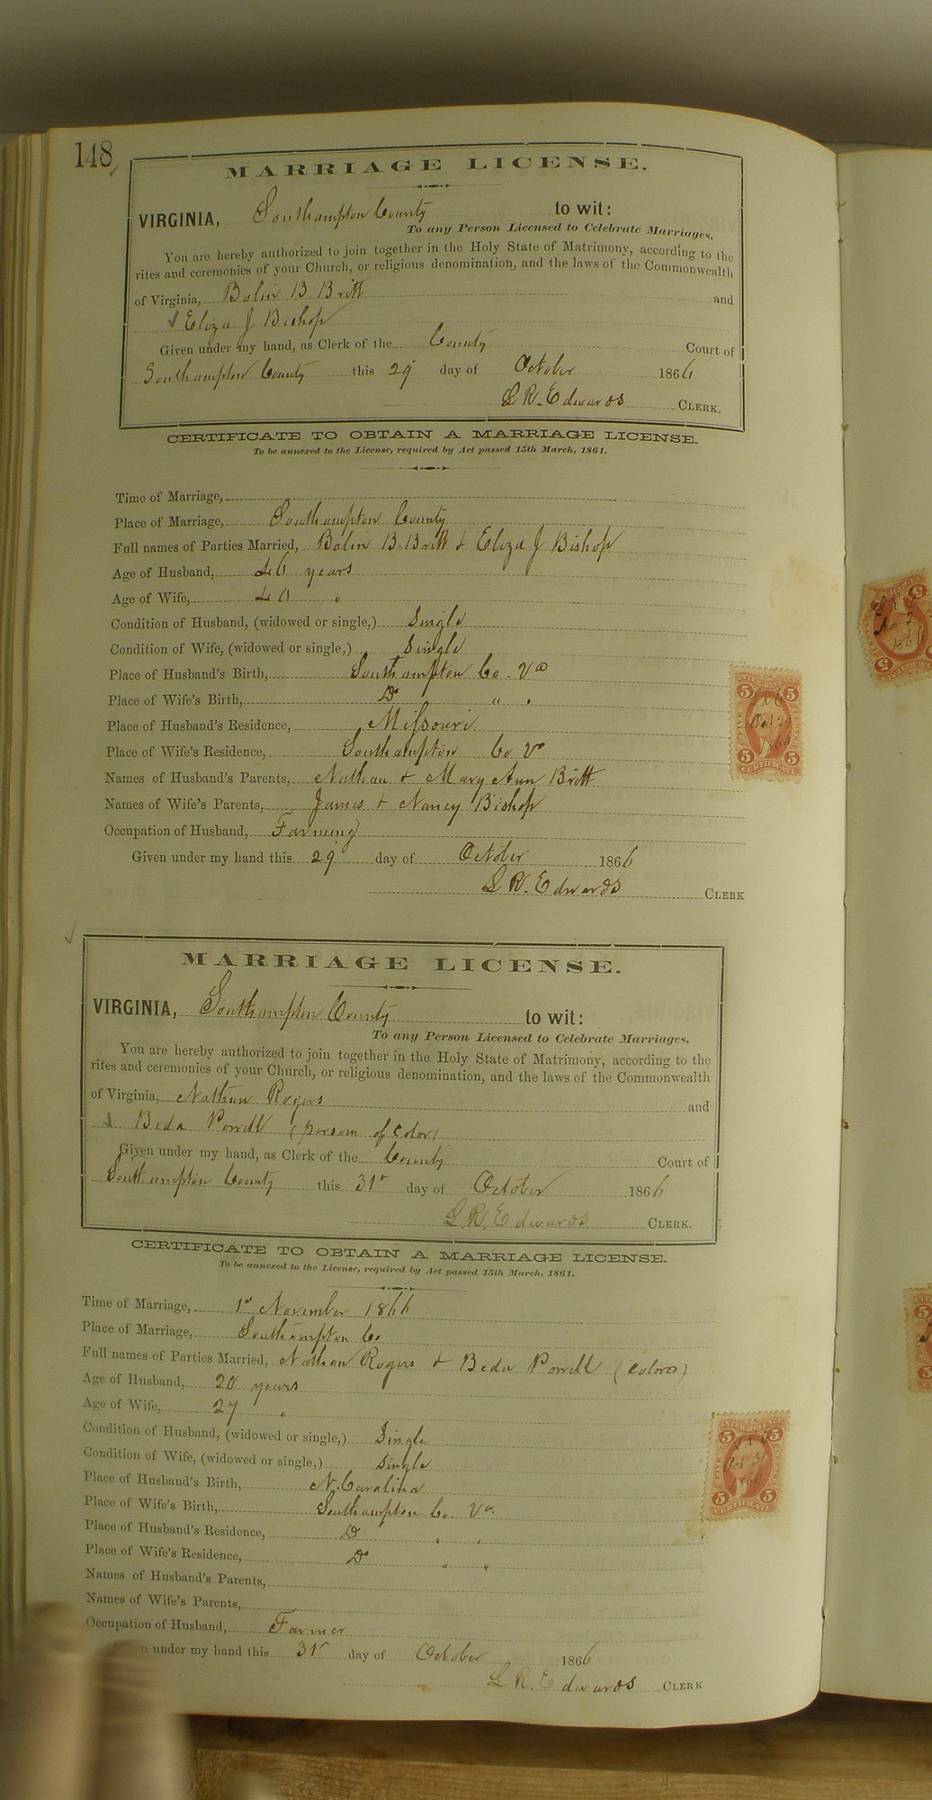 148
MARRIAGE LICENSE.
VIRGINIA, Southampton County to wit:
To any Person Licensed to Celebrate Marriages.
You are hereby authorized to join together in the Holy State of Matrimony, according to the
rites and ceremonies of your Church, or religious denomination, and the laws of the Commonwealth
of Virginia, Bolin B Britt and
& Eliza J Bishop
Given under my hand, as Clerk of the County Court of
Southampton County this 29 day of October 1866
L R. Edwards CLERK.
CERTIFICATE TO OBTAIN A MARRIAGE LICENSE.
To be annexed to the License, required by Act passed 15th March, 1861.
Time of Marriage,
Place of Marriage, Southampton County
Full names of Parties Married, Bolin B. Britt & Eliza J Bishop
Age of Husband, 46 years
Age of Wife, 40 "
Condition of Husband, (widowed or single,) Single
Condition of Wife, (widowed or single,) Single
Place of Husband's Birth, Southampton Co. Va
Place of Wife's Birth, Do " "
Place of Husband's Residence, Missouri
Place of Wife's Residence, Southampton Co Va
Names of Husband's Parents, Nathan & Mary Ann Britt
Names of Wife's Parents, James & Nancy Bishop
Occupation of Husband, Farming
Given under my hand this 29 day of October 1866
L R. Edwards CLERK
MARRIAGE LICENSE.
VIRGINIA, Southampton County to wit:
To any Person Licensed to Celebrate Marriages.
You are hereby authorized to join together in the Holy State of Matrimony, according to the
rites and ceremonies of your Church, or religious denomination, and the laws of the Commonwealth
of Virginia, Nathan Rogers and
& Beda Powell (persom of Color)
Given under my hand, as Clerk of the County Court of
Southampton County this 31st day of October 1866
L R. Edwards CLERK.
CERTIFICATE TO OBTAIN A MARRIAGE LICENSE.
To be annexed to the License, required by Act passed 15th March, 1861.
Time of Marriage, 1st November 1866
Place of Marriage, Southampton Co
Full names of Parties Married, Nathan Rogers & Beda Powell (Colored)
Age of Husband, 20 years
Age of Wife, 27 "
Condition of Husband, (widowed or single,) Single
Condition of Wife, (widowed or single,) Single
Place of Husband's Birth, N. Carolina
Place of Wife's Birth, Southampton Co. Va.
Place of Husband's Residence, Do " "
Place of Wife's Residence, Do " "
Names of Husband's Parents,
Names of Wife's Parents,
Occupation of Husband, Farmer
under my hand this 31st day of October 1866
L R. Edwards CLERK